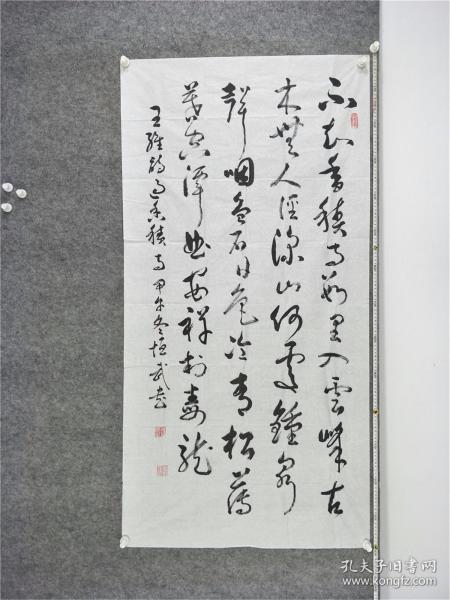 不知香積寺數里入雲峰古
木無人徑深山何處鍾泉
聲咽危石日色冷青松薄
暮空潭曲安禪制毒龍
王維詩過香積寺甲午冬恒武書
孔夫子旧书网
www.kongfz.com